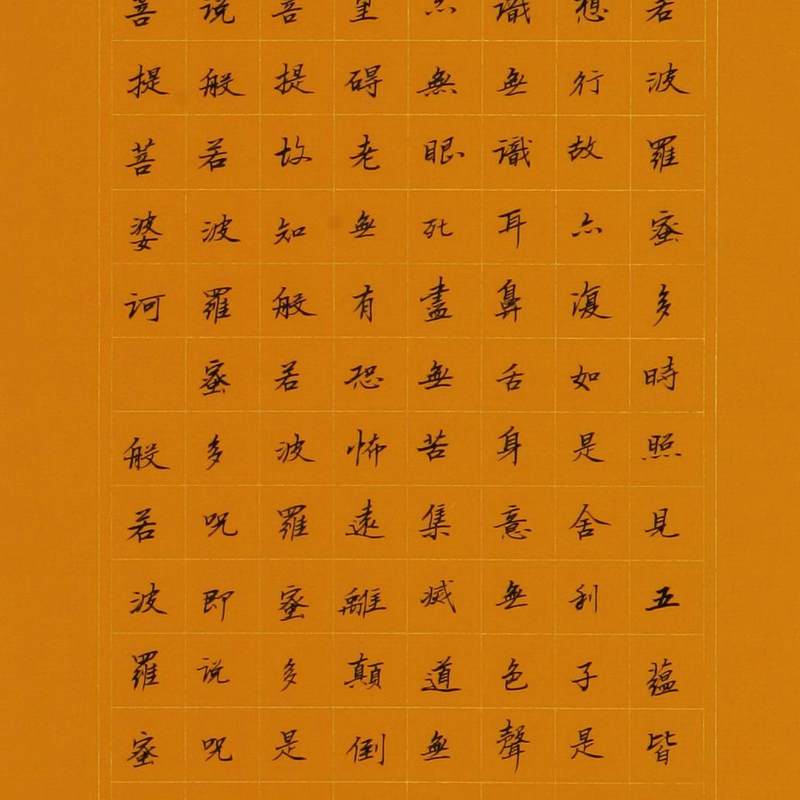 若波羅蜜多時照見五蘊皆
想行故亦復如是舍利子是
識無識耳鼻舌身意無色聲
亦無眼死盡無苦集滅道無
罣碍老無有恐怖遠離顛倒
菩提故知般若波羅蜜多是
説般若波羅蜜多呪即説呪
菩提菩婆訶 般若波羅蜜